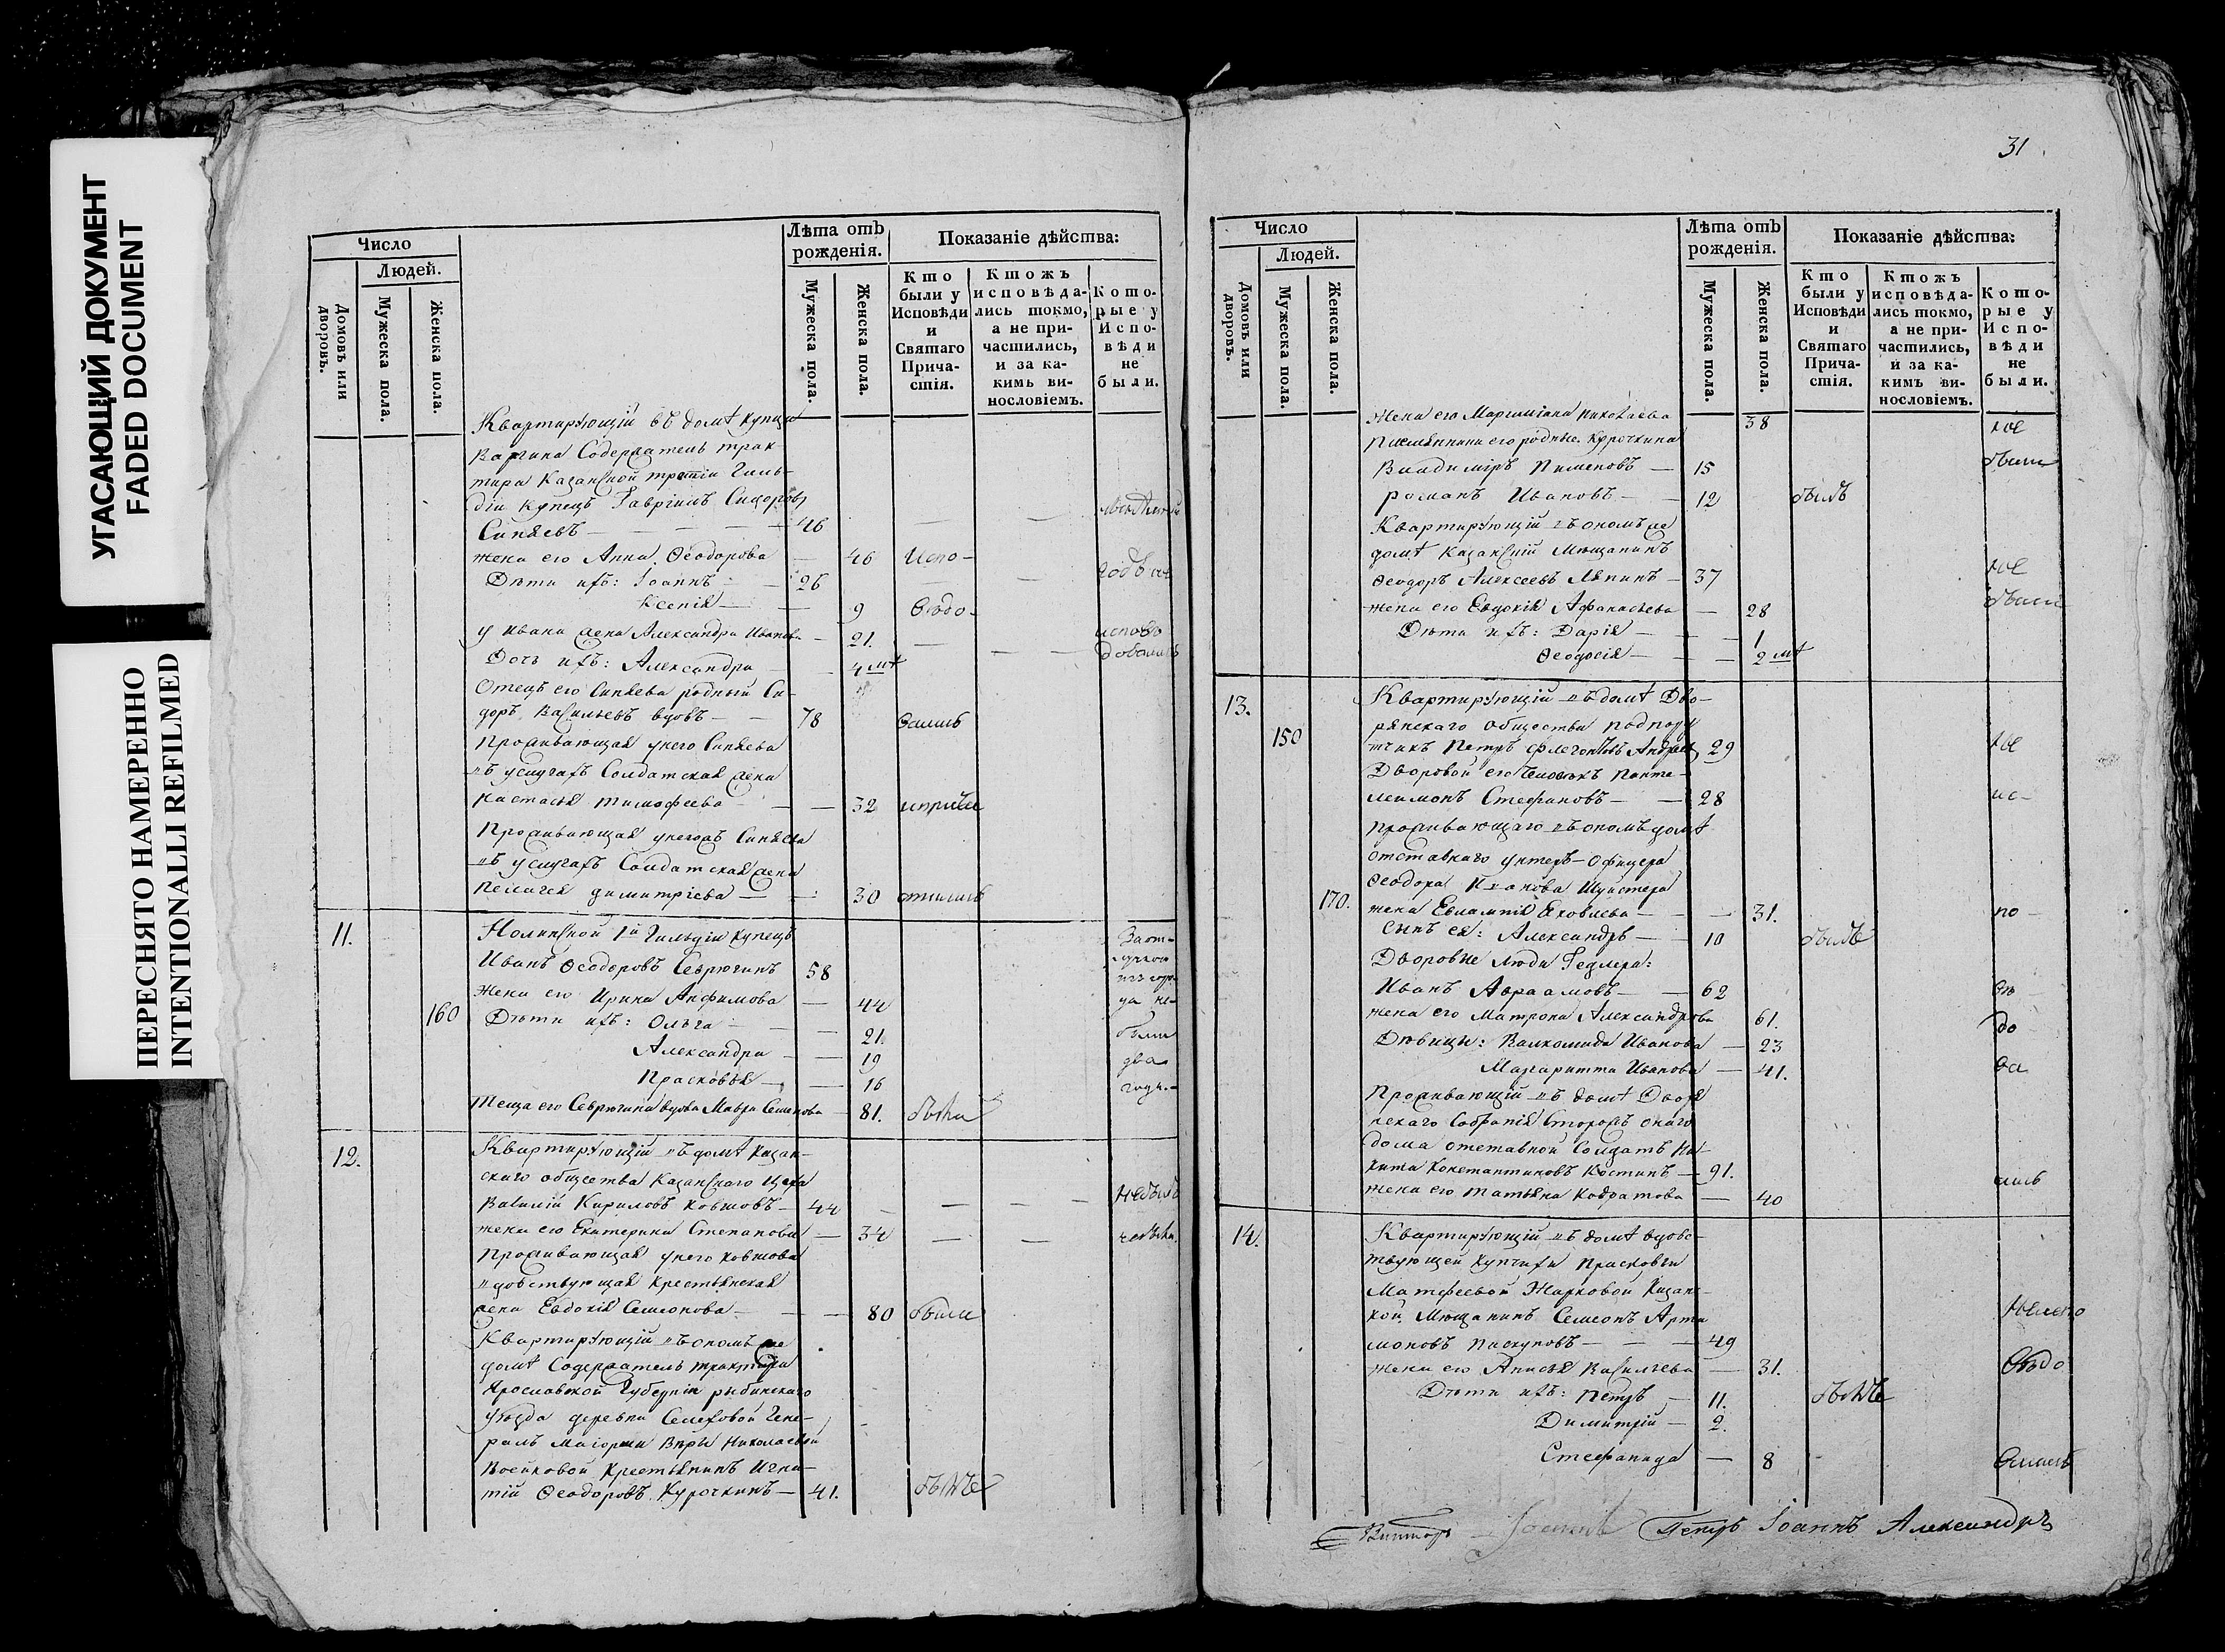 УГАСАЮЩИЙ ДОКУМЕНТ
FADED DOCUMENT
ПЕРЕСНЯТО НАМЕРЕННО
INTENTIONALLI REFILMED
Число
Людей.
Домовъ или дворовъ.
Мужеска пола.
Женска пола.
Лѣта отъ рожденія.
Мужеска пола.
Женска пола.
Показаніе дѣйства:
Кто были у Исповѣди и Святаго Причастія.
Ктожъ исповѣдались токмо, а не причастились, и за какимъ винословіемъ.
Которые у Исповѣди не были.
Квартирующій въ домѣ купца
Содержатель трак-
тира Казанской третій Гиль-
діи купецъ Гавріилъ Сидоровъ
Синяевъ — 46
жена его Анна Ѳеодорова — 46 Испо-
Дѣти ихъ: Іоаннъ — 26
Ксенія — 9 вѣдо-
у Ивана жена Александра Иванова — 21.
Дочь ихъ: Александра — 4 мѣ
Отецъ его Синяева родный Си-
доръ Васильевъ вдовъ — 78 вались
Проживающая у него Синяева
въ услугахъ Солдатская жена
Настасья Тимофеева — 32
Проживающая у него жъ Синяева
въ услугахъ Солдатская жена
Пелагея Димитріева — 30
11. Нолинской 1й Гильдіи купецъ
Иванъ Ѳеодоровъ Севрюгинъ 58
жена его Ирина Анфимова — 44
160 Дѣти ихъ: Ольга — 21. были
Александра — 19 два
Прасковья — 16 года.
Теща его Севрюгина вдова Мавра Семенова — 81. была
12. Квартирующій въ домѣ Казан-
скаго общества Казанскаго Цеха
Василій Кириловъ Ковшовъ — 44
жена его Екатерина Степанова — 34
Проживающая у него Ковшова
вдовствующая крестьянская
жена Евдокія Семенова — 80 были
Квартирующій въ ономъ же
домѣ Содержатель трактира
Ярославской Губерніи рыбинскаго
уѣзда деревни Гене-
ралъ Маіорши Вѣры Николаевой
Воейковой крестьянинъ Игна-
тій Ѳеодоровъ Курочкинъ — 41.
31
Число
Людей.
Домовъ или дворовъ.
Мужеска пола.
Женска пола.
Лѣта отъ рожденія.
Мужеска пола.
Женска пола.
Показаніе дѣйства:
Кто были у Исповѣди и Святаго Причастія.
Ктожъ исповѣдались токмо, а не причастились, и за какимъ винословіемъ.
Которые у Исповѣди не были.
жена его Николаева 38 не
Племянники его родные Курочкина
Владиміръ Пименовъ — 15 были
романъ Ивановъ — 12 былъ
Квартирующій въ ономъ же
домѣ Казанскій Мѣщанинъ
Ѳеодоръ Алексеевъ Ляпинъ — 37 не
жена его Евдокія Афанасьева — 28 были
Дѣти ихъ: Дарія — 1
Ѳеодосія — 2 мѣ
13. Квартирующій въ домѣ Дво-
рянскаго общества подпору-
150 тчикъ Петръ 29 не
Дворовой его человѣкъ Панте-
леимонъ Стефановъ — 28 ис-
проживающаго въ ономъ домѣ
отставнаго унтеръ-Офицера
Ѳеодора Иванова
170. жена Евлампія Яковлева — 31. по-
Сынъ ея: Александръ — 10
Дворовые люди
Иванъ Авраамовъ — 62 вѣ
жена его Матрона Александрова 61. до
Дѣвицы: Иванова — 23
Маргарита Иванова — 41. ва
Проживающій въ домѣ Дворя
нскаго Собранія Сторожъ онаго
дома отставной Солдатъ Ни-
кита Константиновъ Костинъ — 91.
жена его Татьяна Кодратова — 40 лись
14. Квартирующій въ домѣ вдовс-
твующей купчихи Прасковьи
Матфеевой Жарковой Казанс-
кой Мѣщанинъ Семеонъ Арта
моновъ Пискуновъ — 49
жена его Анисья Васильева — 31. вѣдо
Дѣти ихъ: Петръ — 11.
Димитрій — 2.
Стефанида — 8 вались
Викторъ Іоаннъ Петръ Іоаннъ Александръ